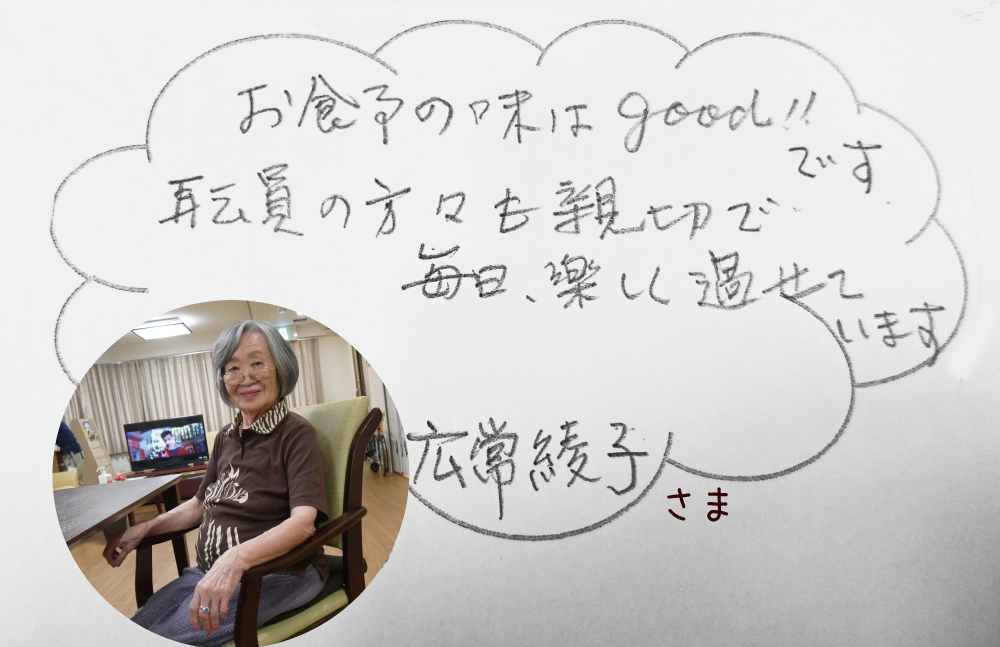 お食事の味は good!!
です
耺員の方々も親切で
毎日、楽しく過せて
います
広常綾子
さま